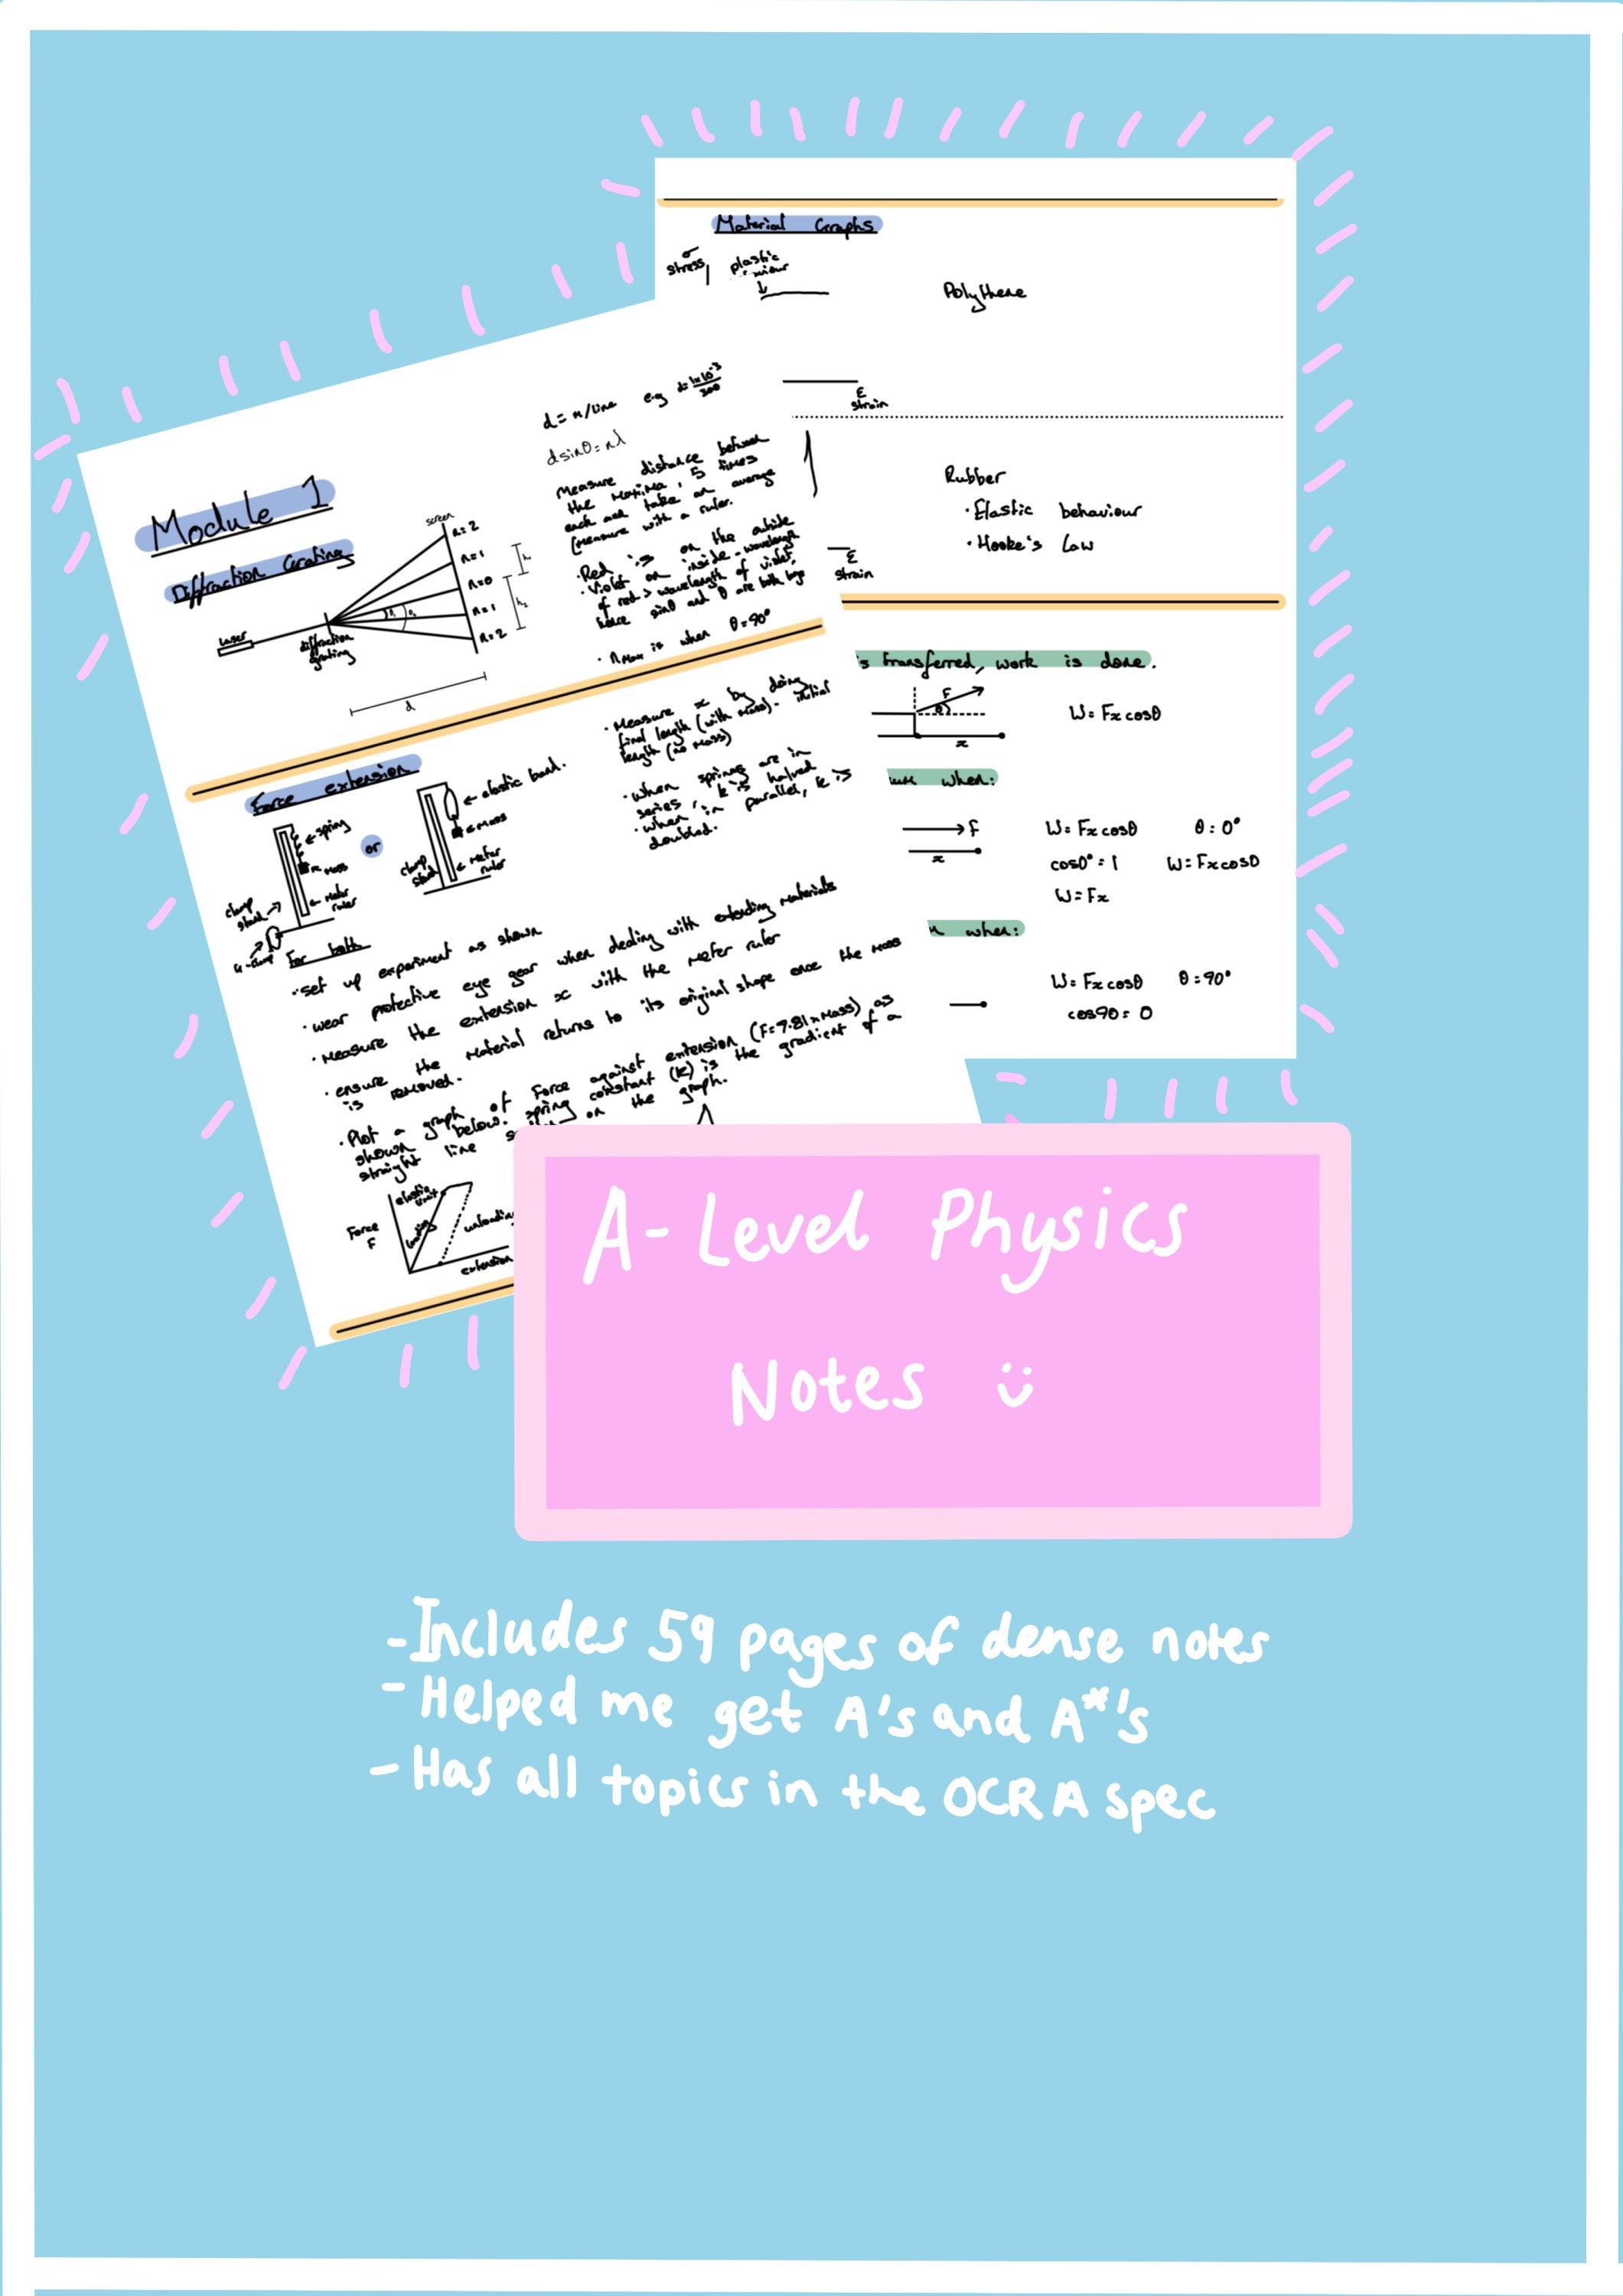 Material Graphs
σ
stress
plastic
Polythene
ε
strain
Rubber
· Elastic behaviour
· Hooke's Law
ε
strain
's transferred, work is done.
F
θ
x
W = Fx cosθ
when:
F
x
W = Fx cosθ θ = 0°
cos0° = 1 W = Fx cos0
W = Fx
when:
W = Fx cosθ θ = 90°
cos90 = 0
Module 1
Diffraction Grating
laser
diffraction
grating
screen
n=2
n=1
n=0
n=1
n=2
d
d = m/line e.g d = 1×10⁻³/300
d sinθ = nλ
Measure distance between
the maxima, 5 times
each and take an average
(measure with a ruler.
· Red is on the outside
· Violet on inside - wavelength
of red > wavelength of violet,
hence sinθ and θ are both
· nmax is when θ = 90°
Force extension
← spring
← mass
← meter
ruler
clamp
stand →
or
← elastic band.
← mass
← meter
ruler
clamp
stand
· Measure x by doing
final length (with mass) - initial
length (no mass)
· when springs are in
series, k is halved
· when in parallel, k is
doubled.
For both
· set up experiment as shown
· wear protective eye gear when dealing with extending materials
· Measure the extension x with the meter ruler
· ensure the material returns to its original shape once the mass
is removed.
· Plot a graph of Force against extension (F=9.81×mass) as
shown below. spring constant (k) is the gradient of a
straight line on the graph.
Force
F
elastic
limit
loading
unloading
extension
A-Level Physics
Notes
-Includes 59 pages of dense notes
- Helped me get A's and A*'s
- Has all topics in the OCR A spec